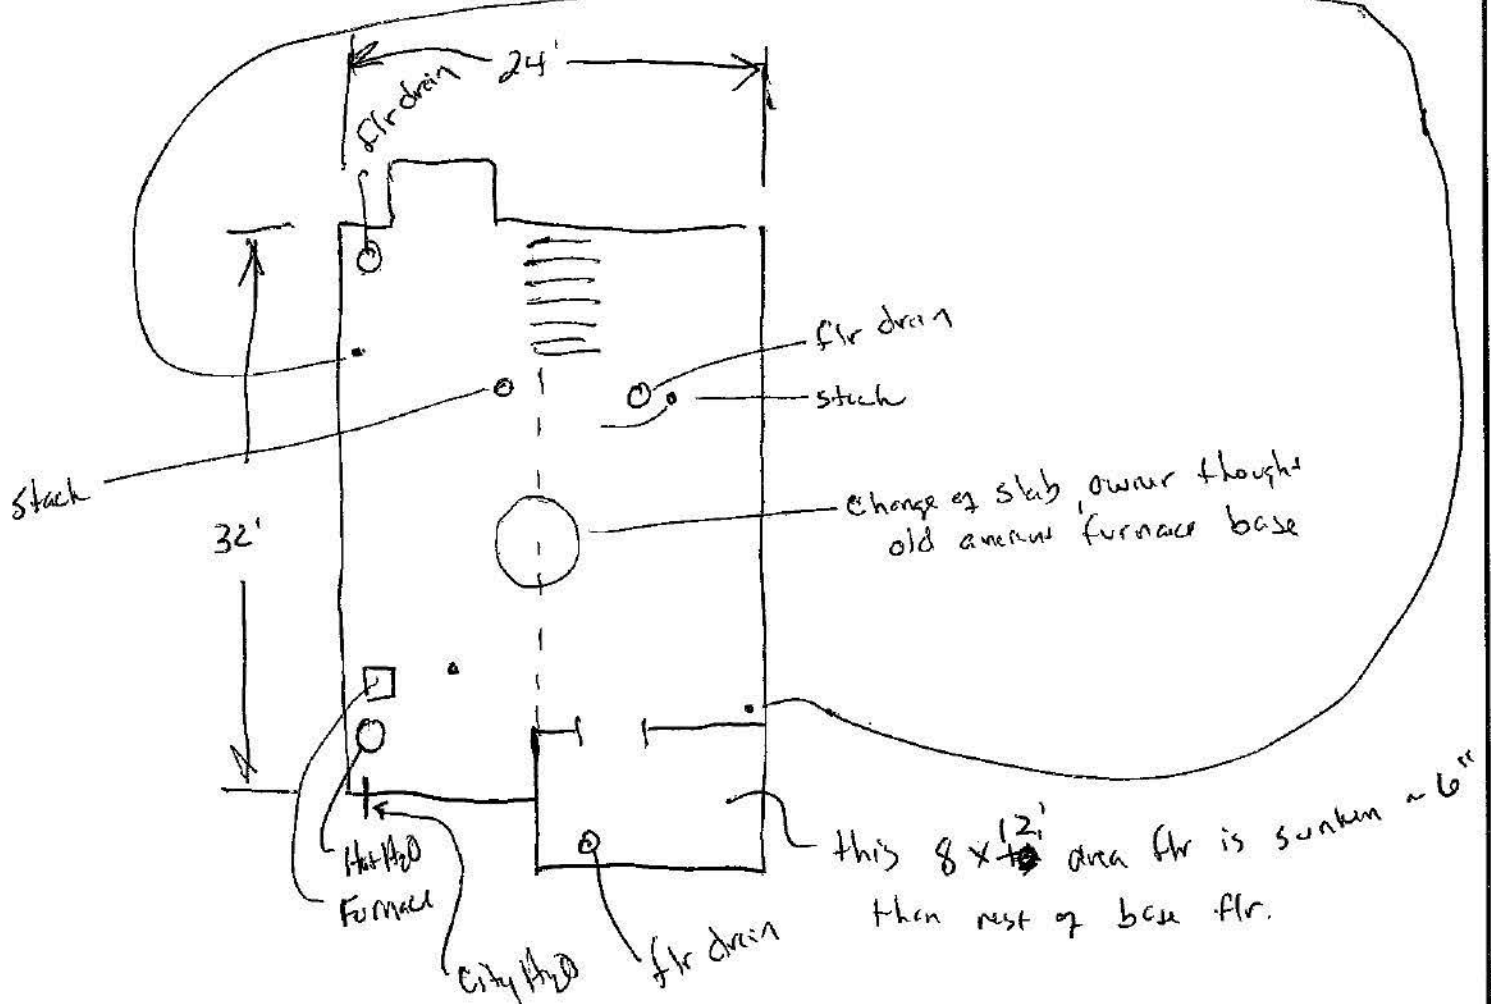 24'
flr drain
flr drain
stack
stack
32'
Change of slab, owner thought
old ancient furnace base
Hot H2O
Furnace
City H2O
flr drain
this 8 x 12' area flr is sunken ~ 6"
than rest of base flr.